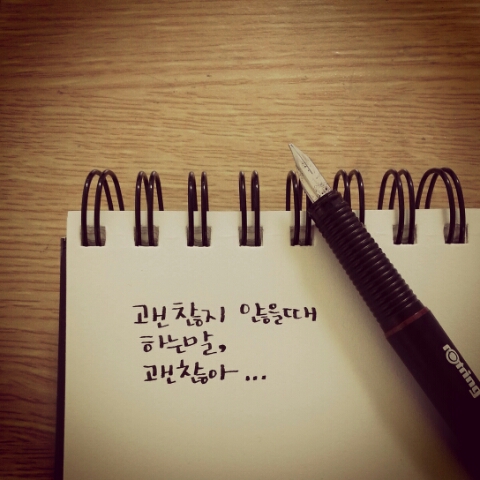 괜찮지 않을때
하는말,
괜찮아...
rotring